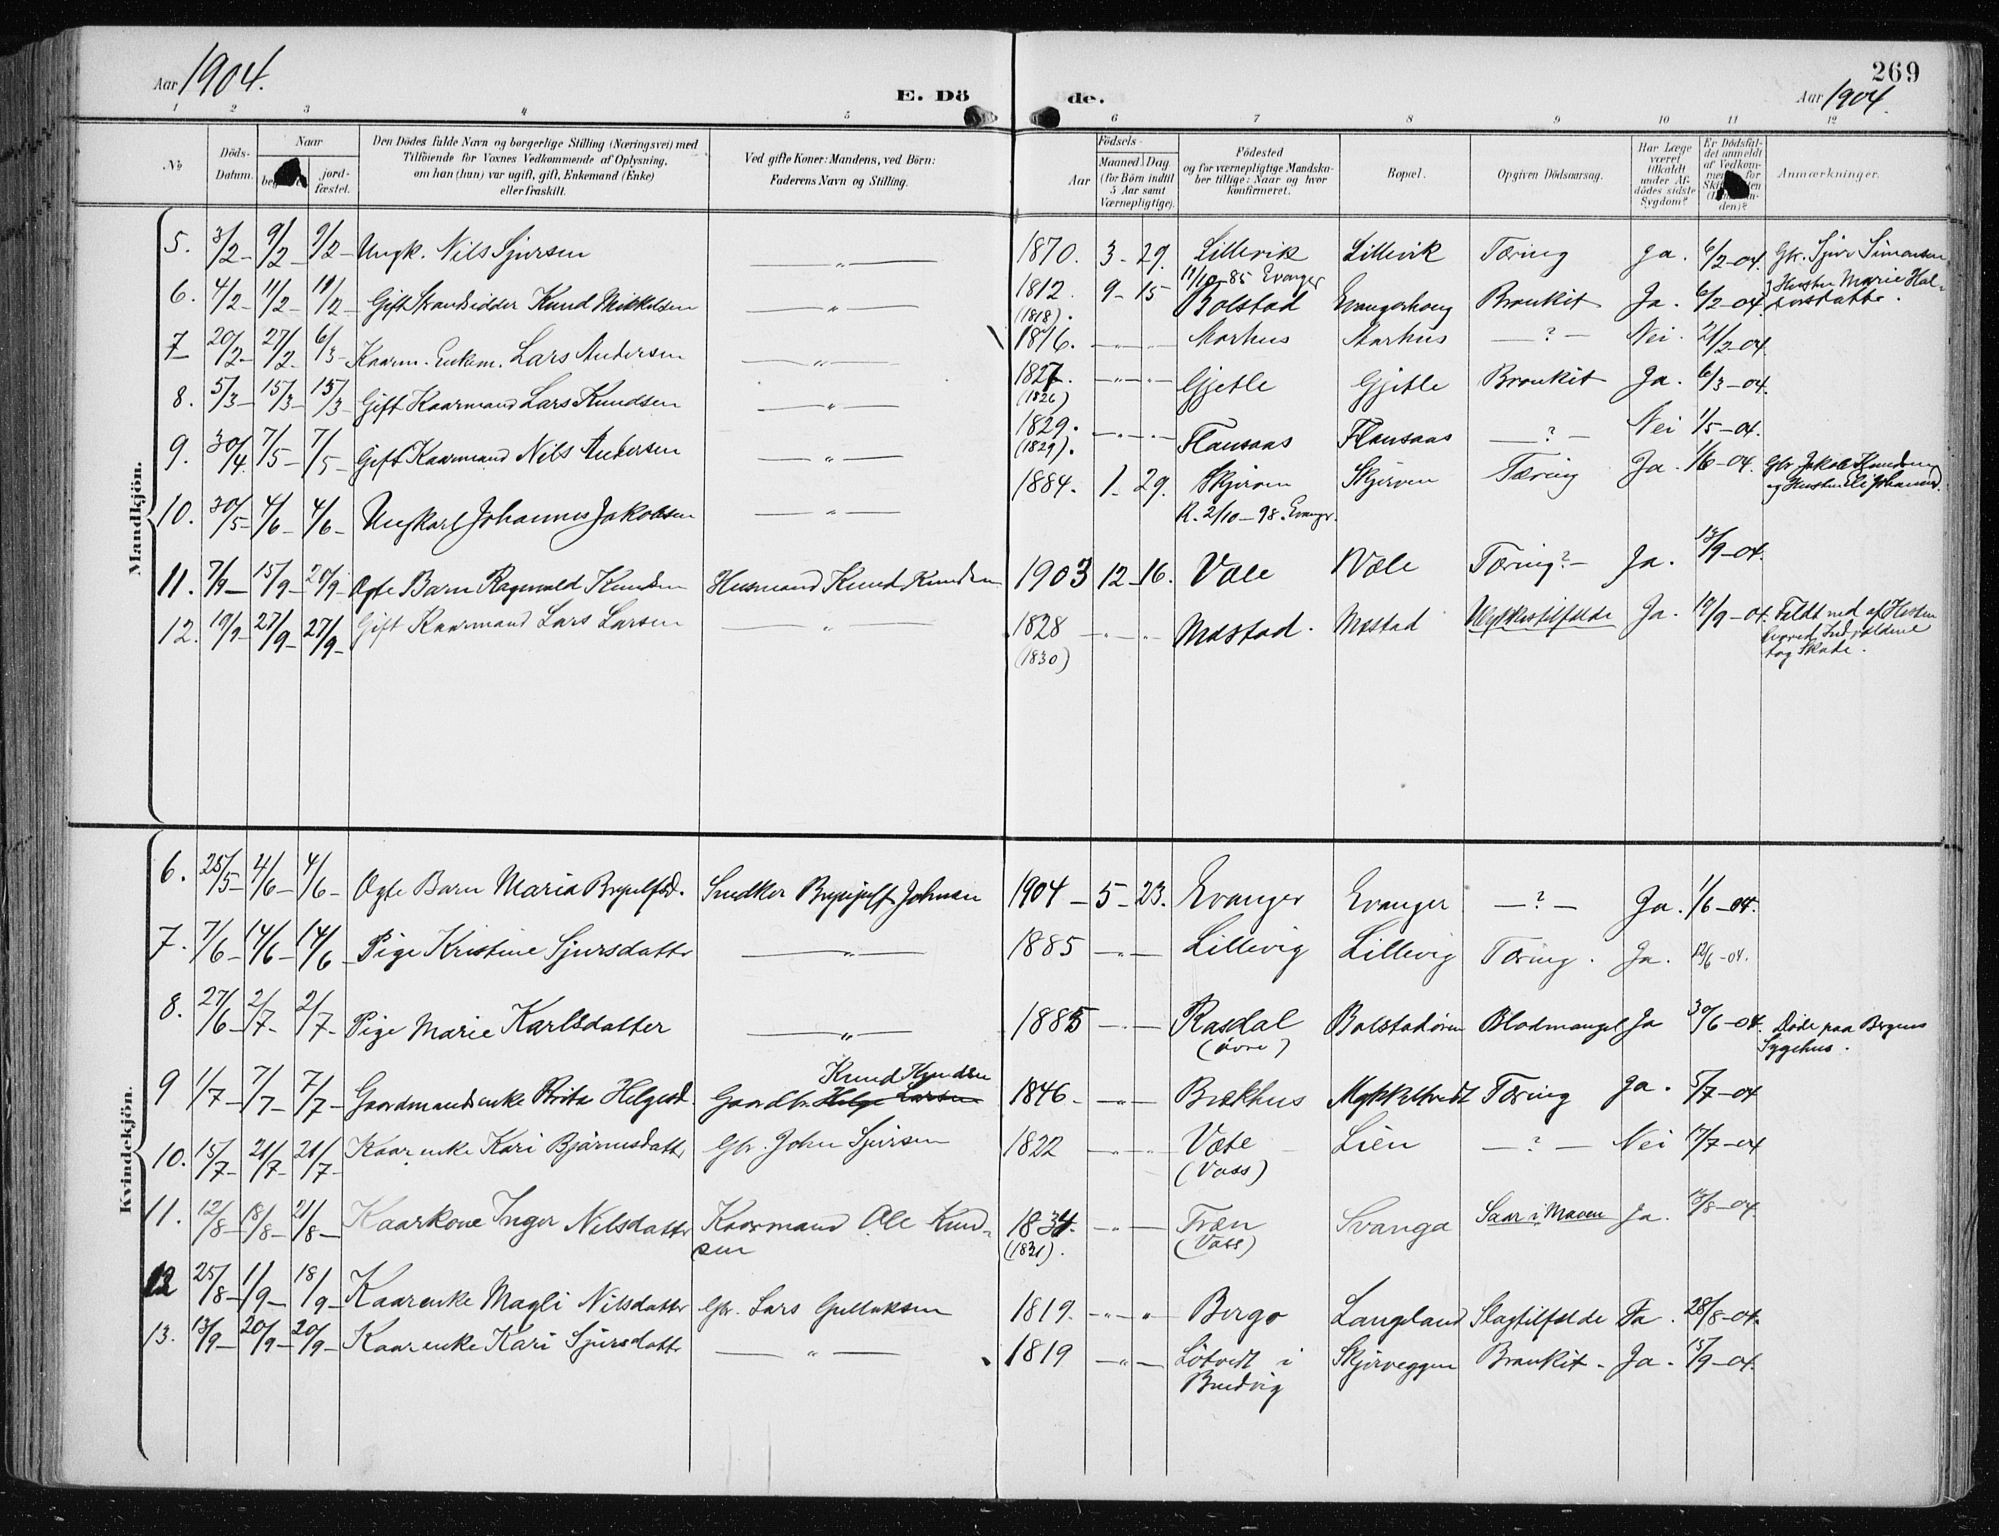 Aar 1904.
E. Dö de.
Aar 1904.
269
1 2 3 4 5 6 7 8 9 10 11 12
No
Döds-Datum.
Naar
jord-fæstet.
Den Dödes fulde Navn og borgerlige Stilling (Næringsvei) med
Tilföiende for Voxnes Vedkommende af Oplysning,
om han (hun) var ugift, gift, Enkemand (Enke)
eller fraskilt.
Ved gifte Koner: Mandens, ved Börn:
Faderens Navn og Stilling.
Födsels-
Aar
Maaned Dag
(for Börn indtil
5 Aar samt
Værnepligtige).
Födested
og for værnepligtige Mandska-
ber tillige: Naar og hvor
konfirmeret.
Bopæl.
Opgiven Dödsaarsag.
Har Læge
været
tilkaldt
under Af-
dödes sidste
Sygdom?
Er Dödsfal-
det anmeldt
af Vedkom-
Anmærkninger.
Mandkjön.
5. 3/2 9/2 9/2 Ungk. Nils Sjursen — " — 1870. 3 - 29. Lillevik Lillevik Tæring Ja. 6/2-04. Gbr. Sjur Simonsen
11/10-85 Evanger Hustru Marie Hal-
6. 4/2 11/2 11/2 Gift Strandsidder Knud Mikkelsen — " — 1812. 9 - 15 Bolstad Evangerhoug Bronkit Ja. 6/2-04. vorsdatter.
(1818).
7 20/2 27/2 6/3 Kaarm. Enkem. Lars Andersen — " — 1816. Aarhus Aarhus — ? — Nei. 21/2-04.
8. 5/3 15/3 15/3 Gift Kaarmand Lars Knudsen — " — 1827. Gjetle Gjetle Bronkit Ja. 6/3-04.
(1826)
9. 30/4 7/5 7/5 Gift Kaarmand Nils Andersen — " — 1829. Flansaas Flansaas — ? — Nei 1/5-04.
(1829).
10. 30/5 4/6 4/6 Ungkarl Johannes Jakobsen — " — 1884. 1 - 29. Skjerven Skjerven Tæring Ja. 1/6-04. Gbr. Jakob Knudsen
og Hustru Eli Johannd.
K. 2/10-98. Evanger.
11. 7/9 15/9 20/9 Ægte Barn Ragnvald Knudsen Husmand Knud Knudsen 1903 12 - 16. Væle Væle Tæring? — Ja. 13/9-04.
12. 19/9 27/9 27/9 Gift Kaarmand Lars Larsen — " — 1828 Mæstad. Mæstad Ulykkestilfælde Ja. 19/9-04. Faldt ned af Hesten
hvorved Indvoldene
tog Skade.
(1830)
Kvindekjön.
6. 25/5 4/6 4/6 Ægte Barn Maria Brynjulfsd. Snedker Brynjulf Johnsen 1904 - 5 - 23. Evanger Evanger — ? — Ja. 1/6-04.
7. 7/6 14/6 14/6 Pige Kristine Sjursdatter — " — 1885 Lillevig Lillevig Tæring. Ja. 12/6-04.
8. 27/6 2/7 2/7 Pige Marie Karlsdatter — " — 1885 Rasdal Bolstadøren Blodmangel Ja 30/6-04. Døde paa Bergens
(øvre) Sygehus.
Knud Knudsen
9 1/7 7/7 7/7 Gaardmandsenke Brita Helgesd. Gaardbr. Helge Larsen 1846 Brækhus Mykkeltvedt Tæring Ja. 5/7-04
10. 15/7 21/7 21/7 Kaarenke Kari Bjørnsdatter Gbr. John Sjursen 1822 Væte Lien — ? — Nei 17/7-04
(Voss)
11. 12/8 18/8 21/8 Kaarkone Inger Nilsdatter Kaarmand Ole Knud-
sen 1831. Træn Svanga Saar i Maven Ja. 13/8-04
(1831). (Voss)
12 25/8 1/9 18/9 Kaarenke Magli Nilsdatter Gbr. Lars Gullaksen 1819. Bergo Langeland Slagtilfælde Ja. 28/8-04.
13. 13/9 20/9 20/9 Kaarenke Kari Sjursdatter — " — 1819 Løtvedt i Skjerveggen Bronkit. Ja. 15/9-04.
Bredvig